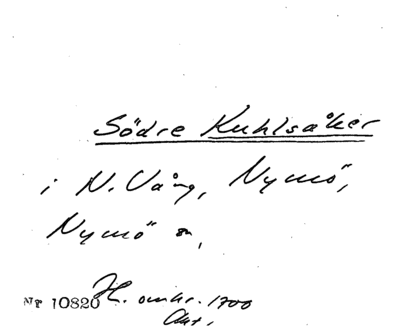 Södre Kuhlsåker
i N. Vång, Nymö,
Nymö sn,
Nr 10820 H. omkr. 1700
Akt.